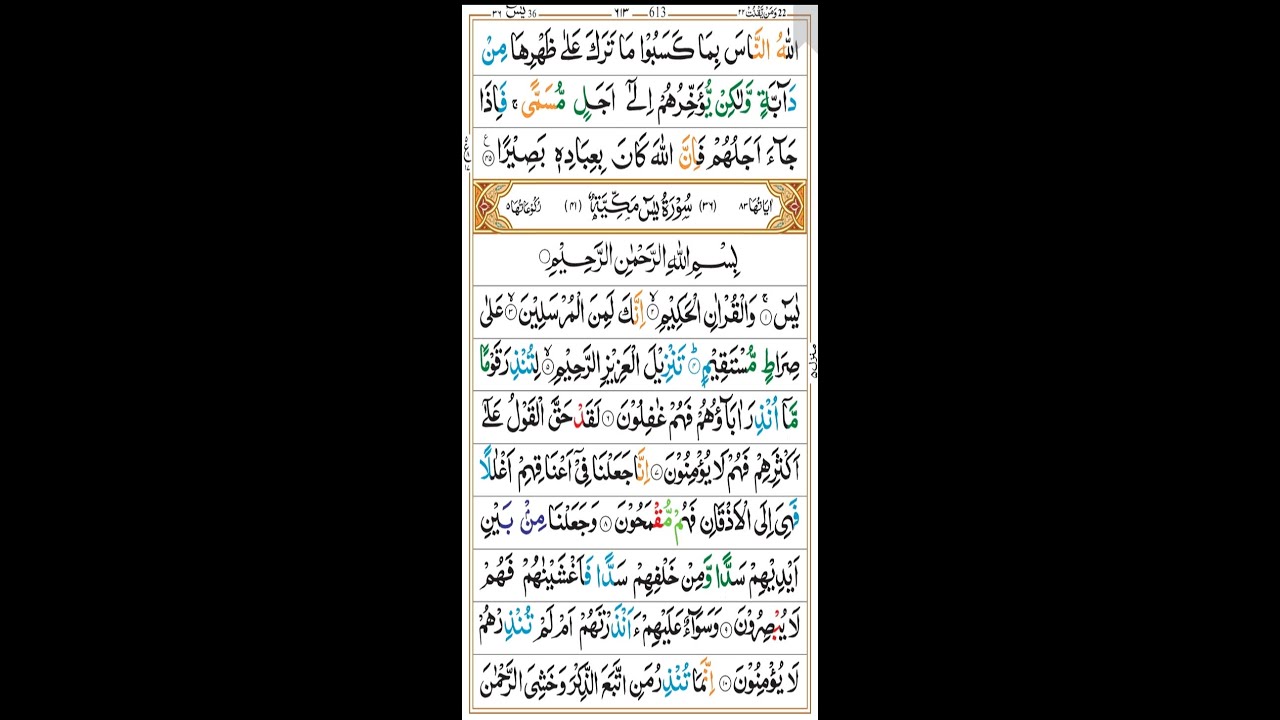 22 وَمَنْ يَّقْنُتْ ٢٢ — 613 — ٦١٣ — يٰسٓ 36 ٣٦
اللّٰهُ النَّاسَ بِمَا كَسَبُوْا مَا تَرَكَ عَلٰى ظَهْرِهَا مِنْ
دَآبَّةٍ وَّلٰكِنْ يُّؤَخِّرُهُمْ اِلٰٓى اَجَلٍ مُّسَمًّى ۚ فَاِذَا
جَآءَ اَجَلُهُمْ فَاِنَّ اللّٰهَ كَانَ بِعِبَادِهٖ بَصِيْرًا ﴿٤٥﴾ ع
اٰيَاتُهَا ٨٣ (٣٦) سُوْرَةُ يٰسٓ مَكِّيَّةٌ (٤١) رُكُوْعَاتُهَا ٥
بِسْمِ اللّٰهِ الرَّحْمٰنِ الرَّحِيْمِ
يٰسٓ ﴿١﴾ وَالْقُرْاٰنِ الْحَكِيْمِ ﴿٢﴾ اِنَّكَ لَمِنَ الْمُرْسَلِيْنَ ﴿٣﴾ عَلٰى
صِرَاطٍ مُّسْتَقِيْمٍ ﴿٤﴾ تَنْزِيْلَ الْعَزِيْزِ الرَّحِيْمِ ﴿٥﴾ لِتُنْذِرَ قَوْمًا
مَّآ اُنْذِرَ اٰبَآؤُهُمْ فَهُمْ غٰفِلُوْنَ ﴿٦﴾ لَقَدْ حَقَّ الْقَوْلُ عَلٰٓى
اَكْثَرِهِمْ فَهُمْ لَا يُؤْمِنُوْنَ ﴿٧﴾ اِنَّا جَعَلْنَا فِيْٓ اَعْنَاقِهِمْ اَغْلٰلًا
فَهِيَ اِلَى الْاَذْقَانِ فَهُمْ مُّقْمَحُوْنَ ﴿٨﴾ وَجَعَلْنَا مِنْۢ بَيْنِ
اَيْدِيْهِمْ سَدًّا وَّمِنْ خَلْفِهِمْ سَدًّا فَاَغْشَيْنٰهُمْ فَهُمْ
لَا يُبْصِرُوْنَ ﴿٩﴾ وَسَوَآءٌ عَلَيْهِمْ ءَاَنْذَرْتَهُمْ اَمْ لَمْ تُنْذِرْهُمْ
لَا يُؤْمِنُوْنَ ﴿١٠﴾ اِنَّمَا تُنْذِرُ مَنِ اتَّبَعَ الذِّكْرَ وَخَشِيَ الرَّحْمٰنَ
منزل ۵